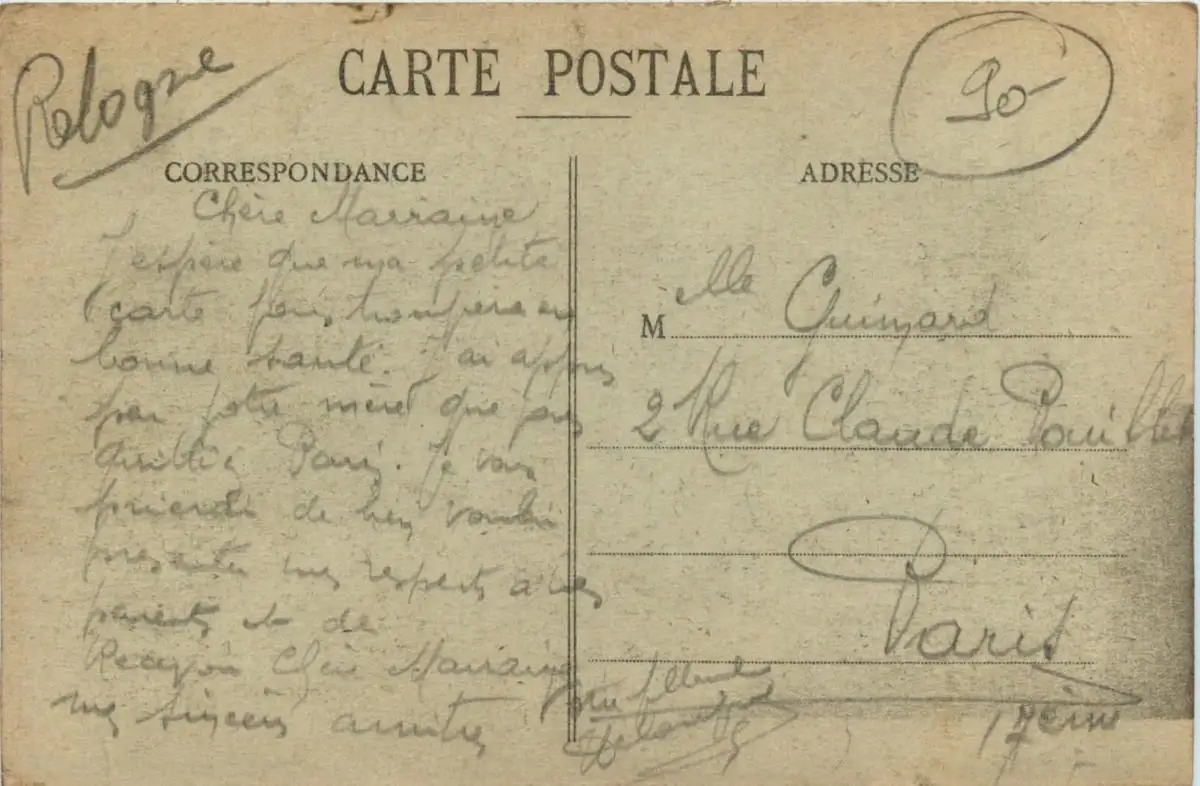 Pologne
CARTE POSTALE
90
CORRESPONDANCE
ADRESSE
Chère Marraine
J'espère que ma petite
carte vous trompera en
bonne santé. J'ai appris
par votre mère que vous
quittié Paris. Je vous
prierai de bien vouloir
presenter mes respects à vos
parents et de
Recevoir Chère Marraine
mes sincères amitiés
Votre filleul
Mlle Guimard
2 Rue Claude Pouillet
Paris
17ème